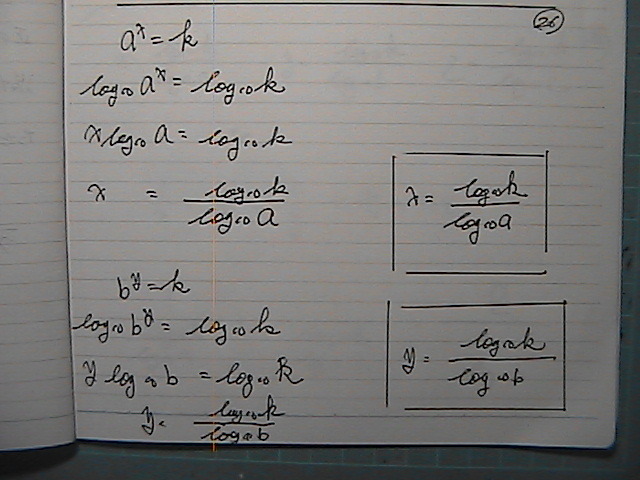 26
aˣ = k
log₁₀ aˣ = log₁₀ k
x log₁₀ a = log₁₀ k
x = log₁₀ k / log₁₀ a
x = log₁₀ k / log₁₀ a
bʸ = k
log₁₀ bʸ = log₁₀ k
y log₁₀ b = log₁₀ k
y = log₁₀ k / log₁₀ b
y = log₁₀ k / log₁₀ b